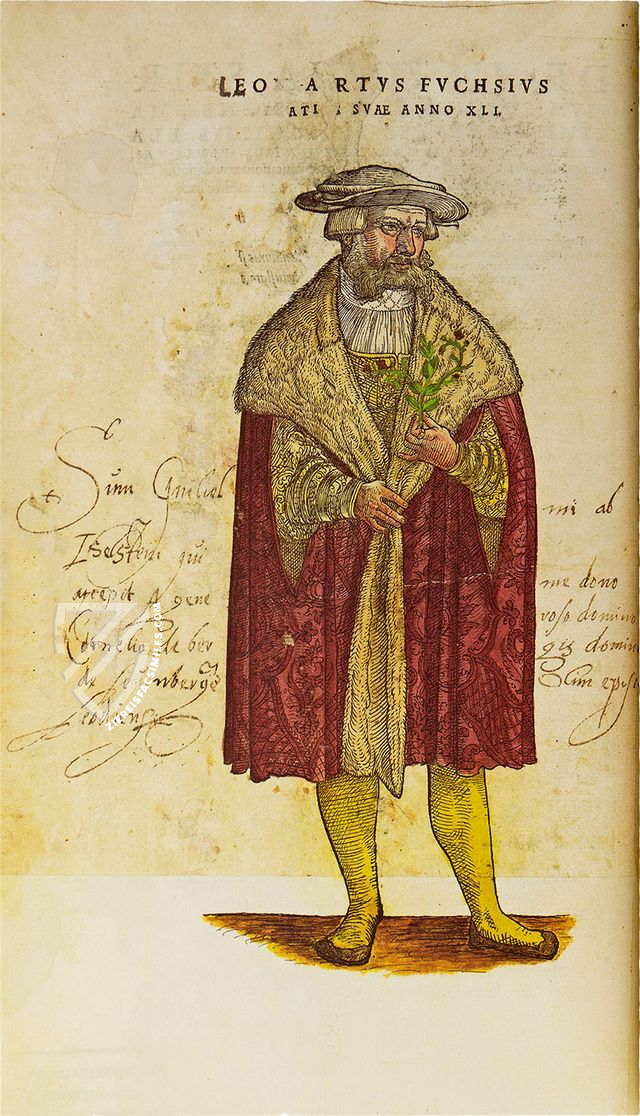 LEON A RTVS FVCHSIVS
ATI S SVAE ANNO XLI.
Sum Guiliel mi ab
Iselstein qui
accepit a gene me dono
Cornelio de ber roso domino
de gis domin
Leodiensi Cum epis
ZIEREISFACSIMILES.COM